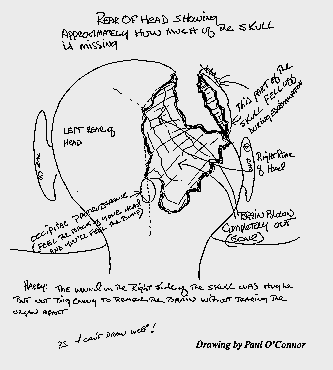 REAR OF HEAD SHOWING
APPROXIMATELY HOW MUCH OF THE SKULL
IS MISSING
THIS PART OF THE
SKULL FELL OFF
DURING EXAMINATION
LEFT REAR OF
HEAD
EAR
EAR
RIGHT REAR
OF HEAD
OCCIPITAL PROTUBERANCE
(FEEL THE BACK OF YOUR HEAD
AND YOU'LL FEEL THE BUMP)
BRAIN BLOWN
COMPLETELY OUT
(GONE)
HARRY: THE WOUND IN THE RIGHT SIDE OF THE SKULL WAS HUGE
BUT NOT BIG ENOUGH TO REMOVE THE BRAIN WITHOUT TEARING THE
ORGAN APART
I CAN'T DRAW WELL!
Drawing by Paul O'Connor